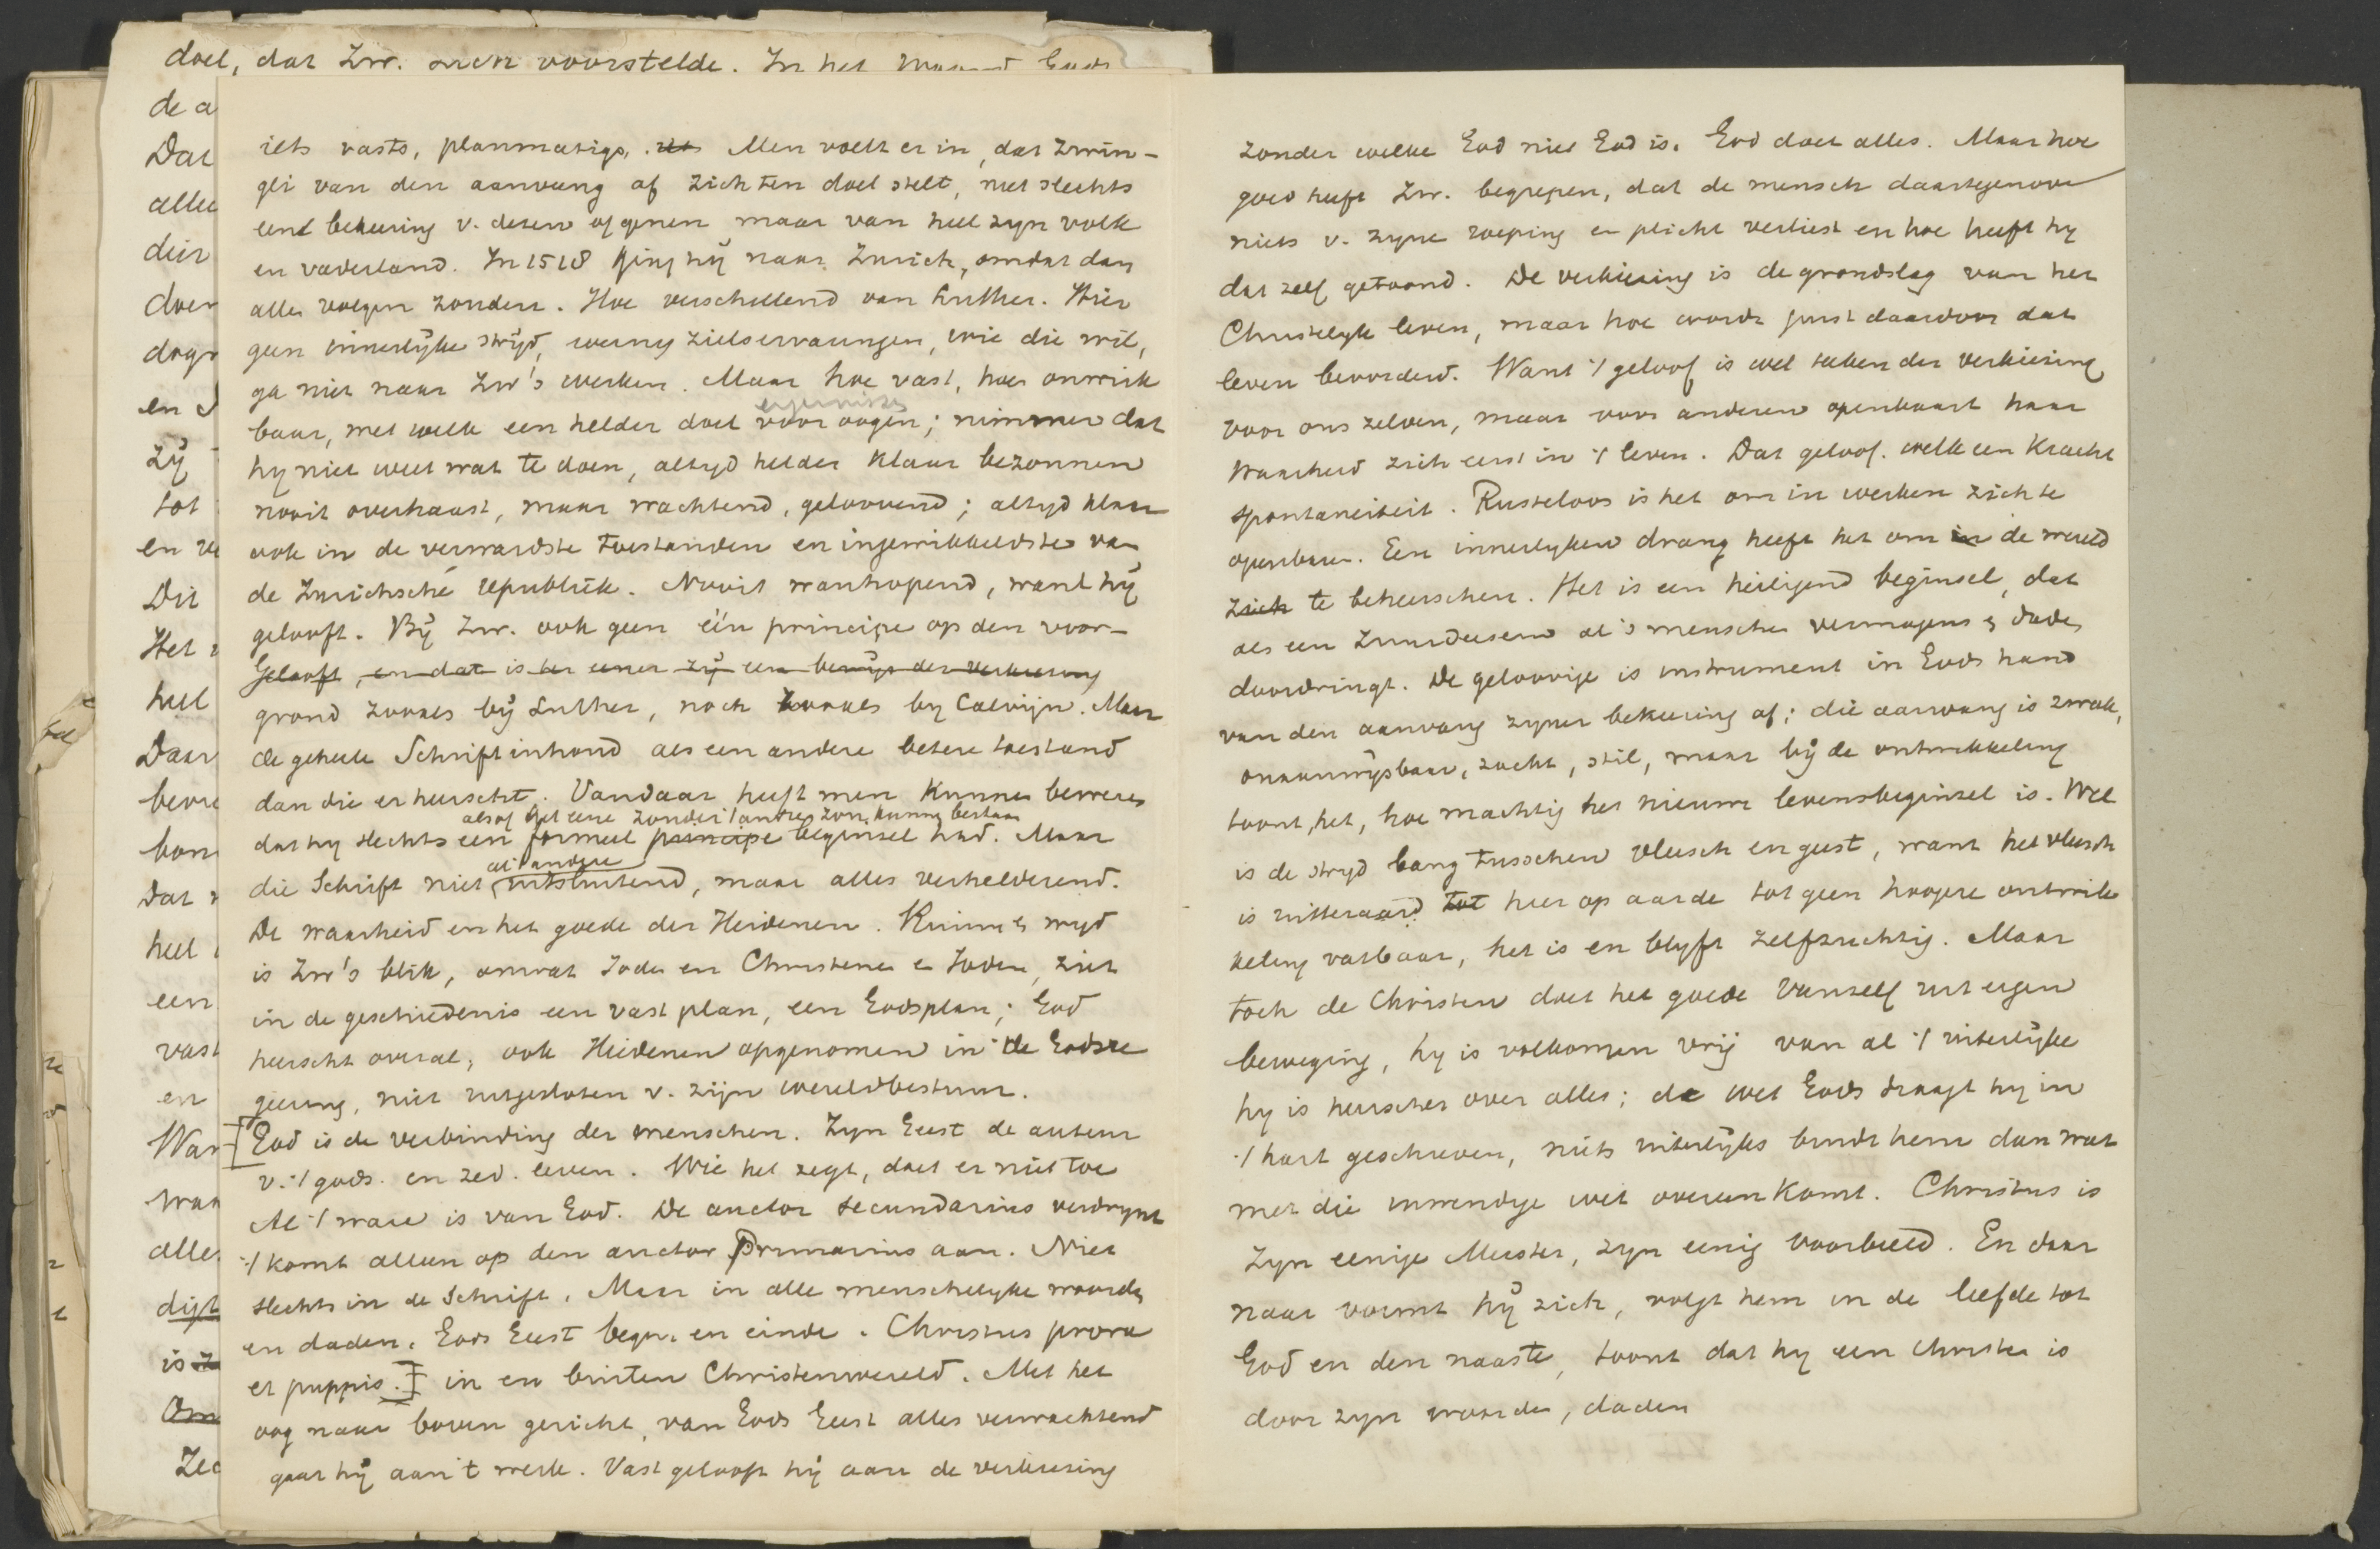 doel, dat Zw. zich voorstelde. In het Woord Gods
de a
Dat
alle
dier
door
dogr
en
zij
tot
en ve
Dit
Het
heel
Daar
bevre
bon
Dat
heel
een
vast
en
Wan
wan
alles
digt
is
Om
Zed
iets vasts, planmatigs, Men voelt er in, dat Zwin-
gli van den aanvang af zich ten doel stelt, niet slechts
eene bekeering v. dezen of genen maar van heel zijn volk
en vaderland. In 1518 ging hij naar Zurich, omdat dan
alles volgen zouden. Hoe verschillend van Luther. Hier
geen innerlijke strijd, weinig zielservaringen, wie die wil,
ga niet naar Zw's werken. Maar hoe vast, hoe onwrik
baar, met welk een helder doel voor oogen; nimmer dat
hij niet weet wat te doen, altyd helder klaar bezonnen
nooit overhaast, maar wachtend, geloovend; altyd klaar
ook in de verwardste toestanden en ingewikkeldste van
de Zurichsche republiek. Nooit wanhopend, want hij
gelooft. Bij Zw. ook geen één principe op den voor-
Gelooft, en dat is der eener zij een bewijs der verkiezing
grond zooals bij Luther, noch zooals by Calvijn. Maar
de geheele Schriftinhoud als een andere betere toestand
dan die er heerscht. Vandaar heeft men kunnen beweren
alsof het eene zonder 't andere zou kunnen bestaan
dat hy slechts een formeel principe beginsel had. Maar
al 't andere
die Schrift niet uitsluitend, maar alles verhelderend.
De waarheid en het goede der Heidenen. Ruim & wyd
is Zw's blik, omvat Joden en Christenen en Joden, ziet
in de geschiedenis een vast plan, een Godsplan; God
heerscht overal, ook Heidenen opgenomen in de Godsre
geering, niet uitgesloten v. zijn wereldbestuur.
[God is de verbinding der menschen. Zyn Geest de auteur
v. 't gods. en zed. leven. Wie het zegt, doet er niet toe
Al 't ware is van God. De auctor secundarius verdwynt
't komt alleen op den auctor Primarius aan. Niet
slechts in de Schrift. Maar in alle menschelyke woorden
en daden. Gods Geest begin en einde. Christus prora
et puppis.] in en buiten Christenwereld. Met het
oog naar boven gericht, van Gods Geest alles verwachtend
gaat hij aan 't werk. Vast gelooft hij aan de verkiezing
zonder welke God niet God is. God doet alles. Maar hoe
goed heeft Zw. begrepen, dat de mensch daartegenover
niets v. zyne roeping en plicht verliest en hoe heeft hy
dat zelf getoond. De verkiezing is de grondslag van het
Christelyk leven, maar hoe wordt juist daardoor dat
leven bevorderd. Want 't geloof is wel teeken der verkiezing
voor ons zelven, maar voor anderen openbaart haar
waarheid zich eerst in 't leven. Dat geloof. welk een kracht
spontaneiteit. Rusteloos is het om in werken zich te
openbaren. Een innerlyken drang heeft het om in de wereld
zich te beheerschen. Het is een heiligend beginsel, dat
als een zuurdeesem al 's menschen vermogens & daden
doordringt. De geloovige is instrument in Gods hand
van den aanvang zyner bekeering af; die aanvang is zwak,
onaanwijsbaar, zacht, stil, maar bij de ontwikkeling
toont het, hoe machtig het nieuwe levensbeginsel is. Wel
is de stryd bang tusschen vleesch en geest, want het vleesch
is uitteraard tot hier op aarde tot geen hoogere ontwik
keling vatbaar, het is en blyft zelfzuchtig. Maar
toch de Christen doet het goede vanzelf uit eigen
beweging, hy is volkomen vrij van al 't uiterlijke
hy is heerscher over alles; de wet Gods draagt hy in
't hart geschreven, niets uiterlijks bindt hem dan wat
met die inwendige wet overeenkomt. Christus is
Zyn eenige Meester, zyn eenig voorbeeld. En daar
naar vormt hij zich, volgt hem in de liefde tot
God en den naaste, toont dat hy een Christen is
door zyn woorden, daden